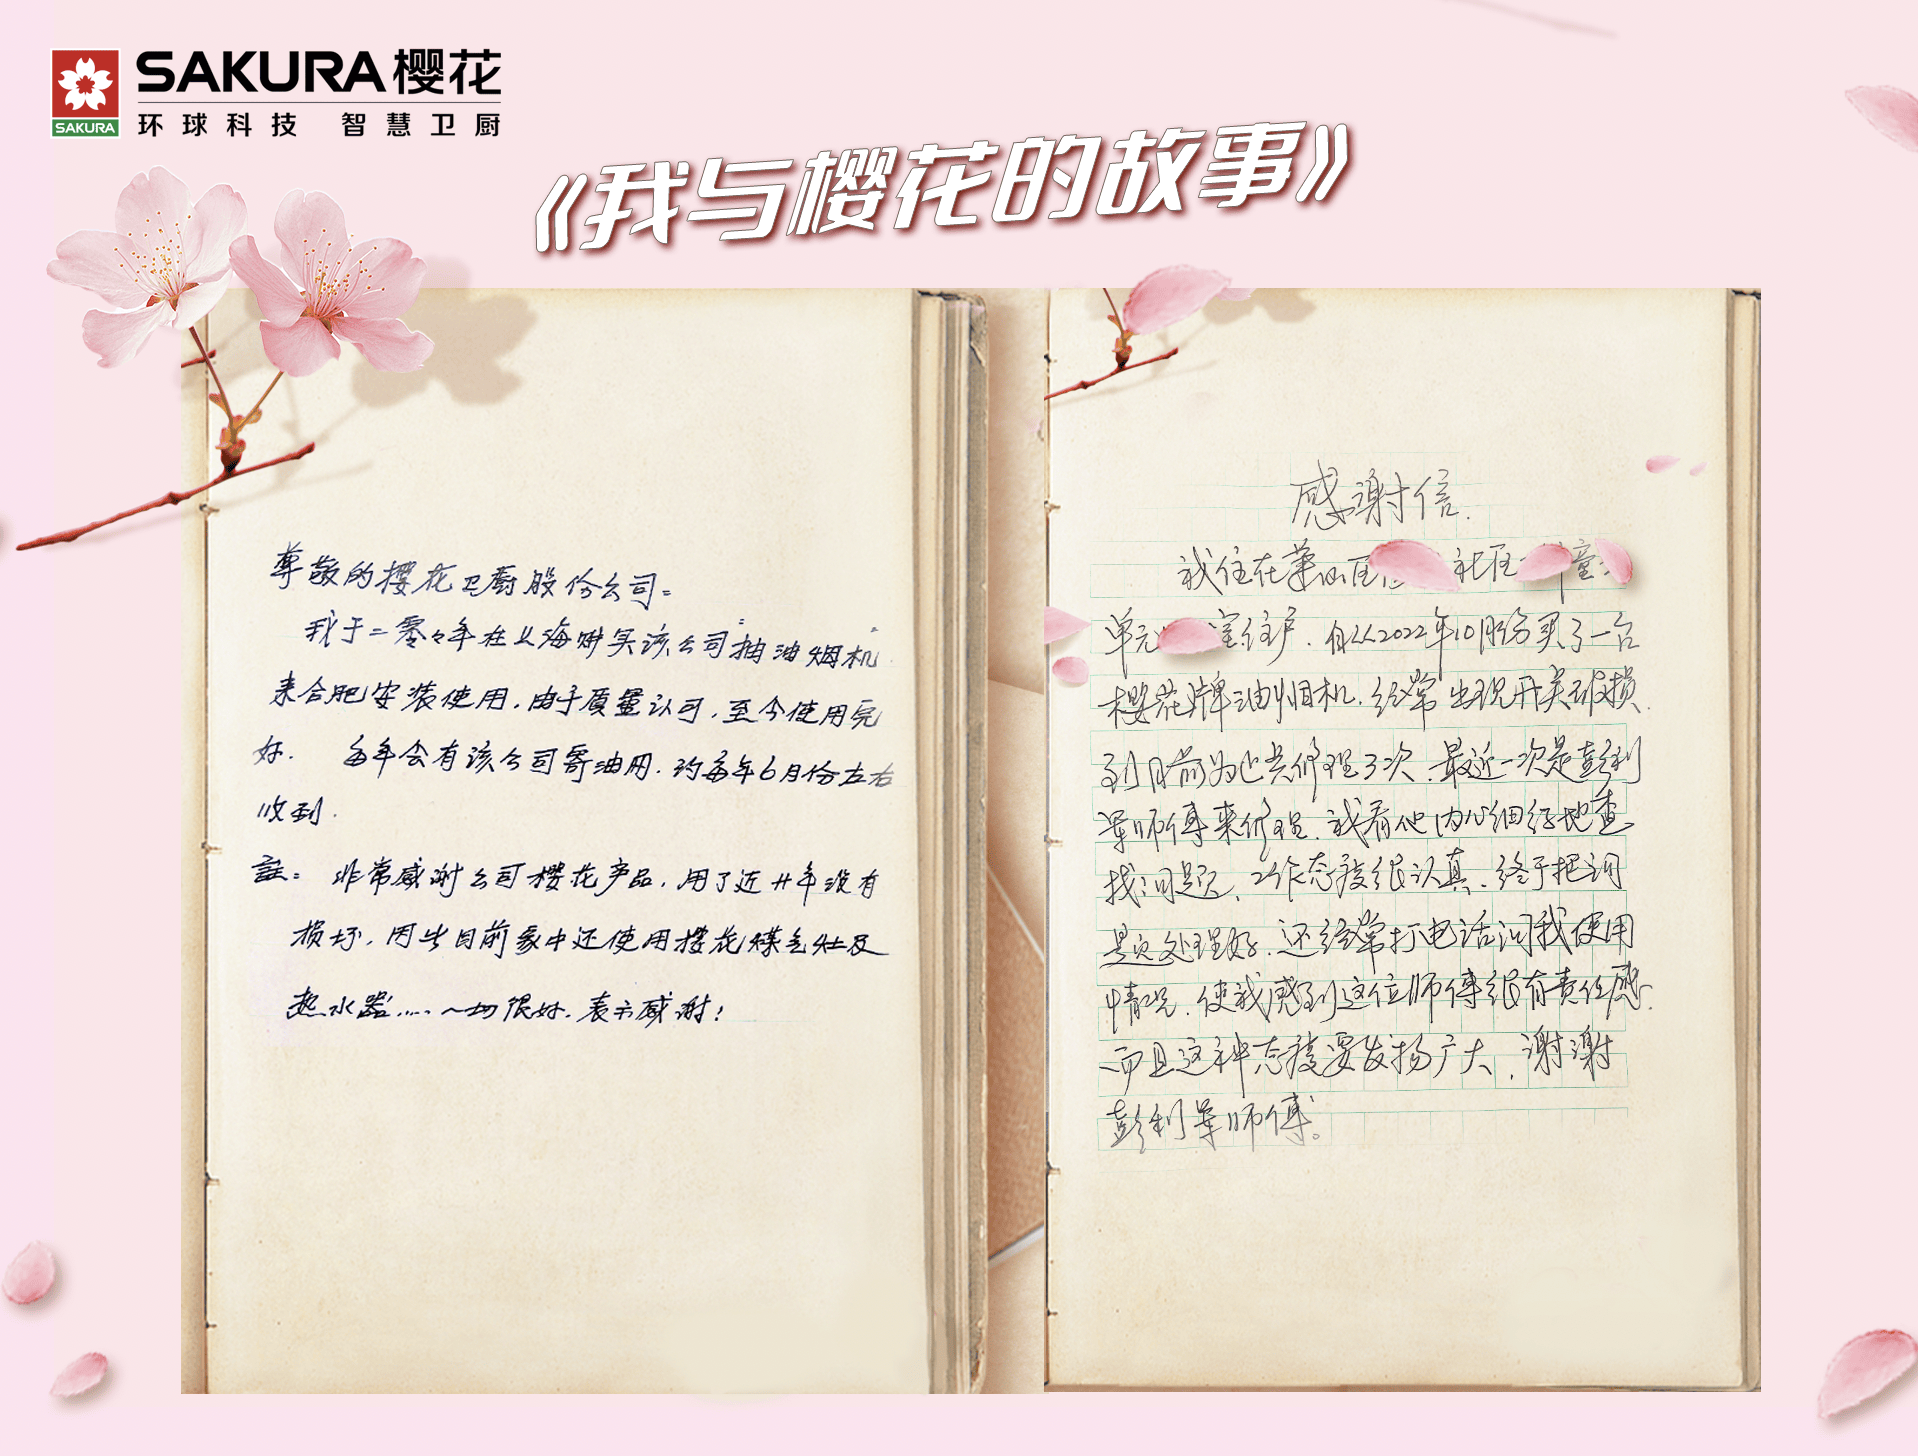 SAKURA
SAKURA樱花
环球科技 智慧卫厨
《我与樱花的故事》
尊敬的樱花卫厨股份公司:
我于二零零年在上海购买该公司抽油烟机
来合肥安装使用,由于质量认可,至今使用完
好. 每年会有该公司寄油网.约每年6月份左右
收到.
註: 非常感谢公司樱花产品,用了近廿年没有
损坏,因此目前家中还使用樱花煤气灶及
热水器..... 一切很好.表示感谢!
感谢信.
我住在蜀山区 社区 童
单元 室住户.自从2022年10月份买了一台
樱花牌油烟机.经常出现开关破损.
到目前为止共修理3次.最近一次是彭利
军师傅来修理.我看他内心细经地查
找问题,工作态度很认真.终于把问
题处理好.还经常打电话问我使用
情况.使我感到这位师傅很有责任感.
而且这种态度要发扬广大.谢谢
彭利军师傅。